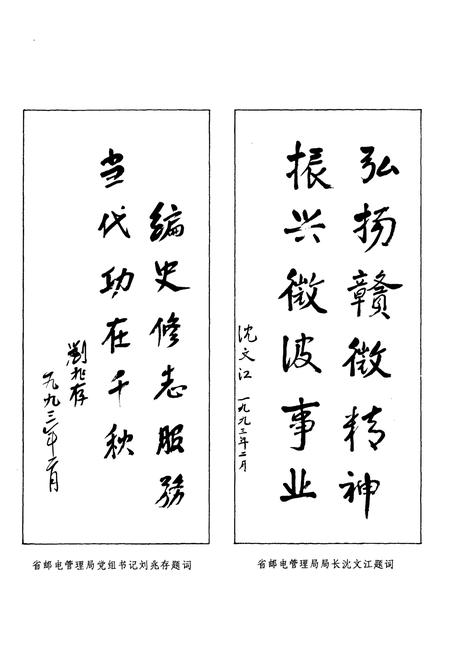 弘扬赣微精神
振兴微波事业
沈文江 一九九三年二月
省邮电管理局局长沈文江题词
编史修志服务
当代功在千秋
劉兆存
一九九三年二月
省邮电管理局党组书记刘兆存题词